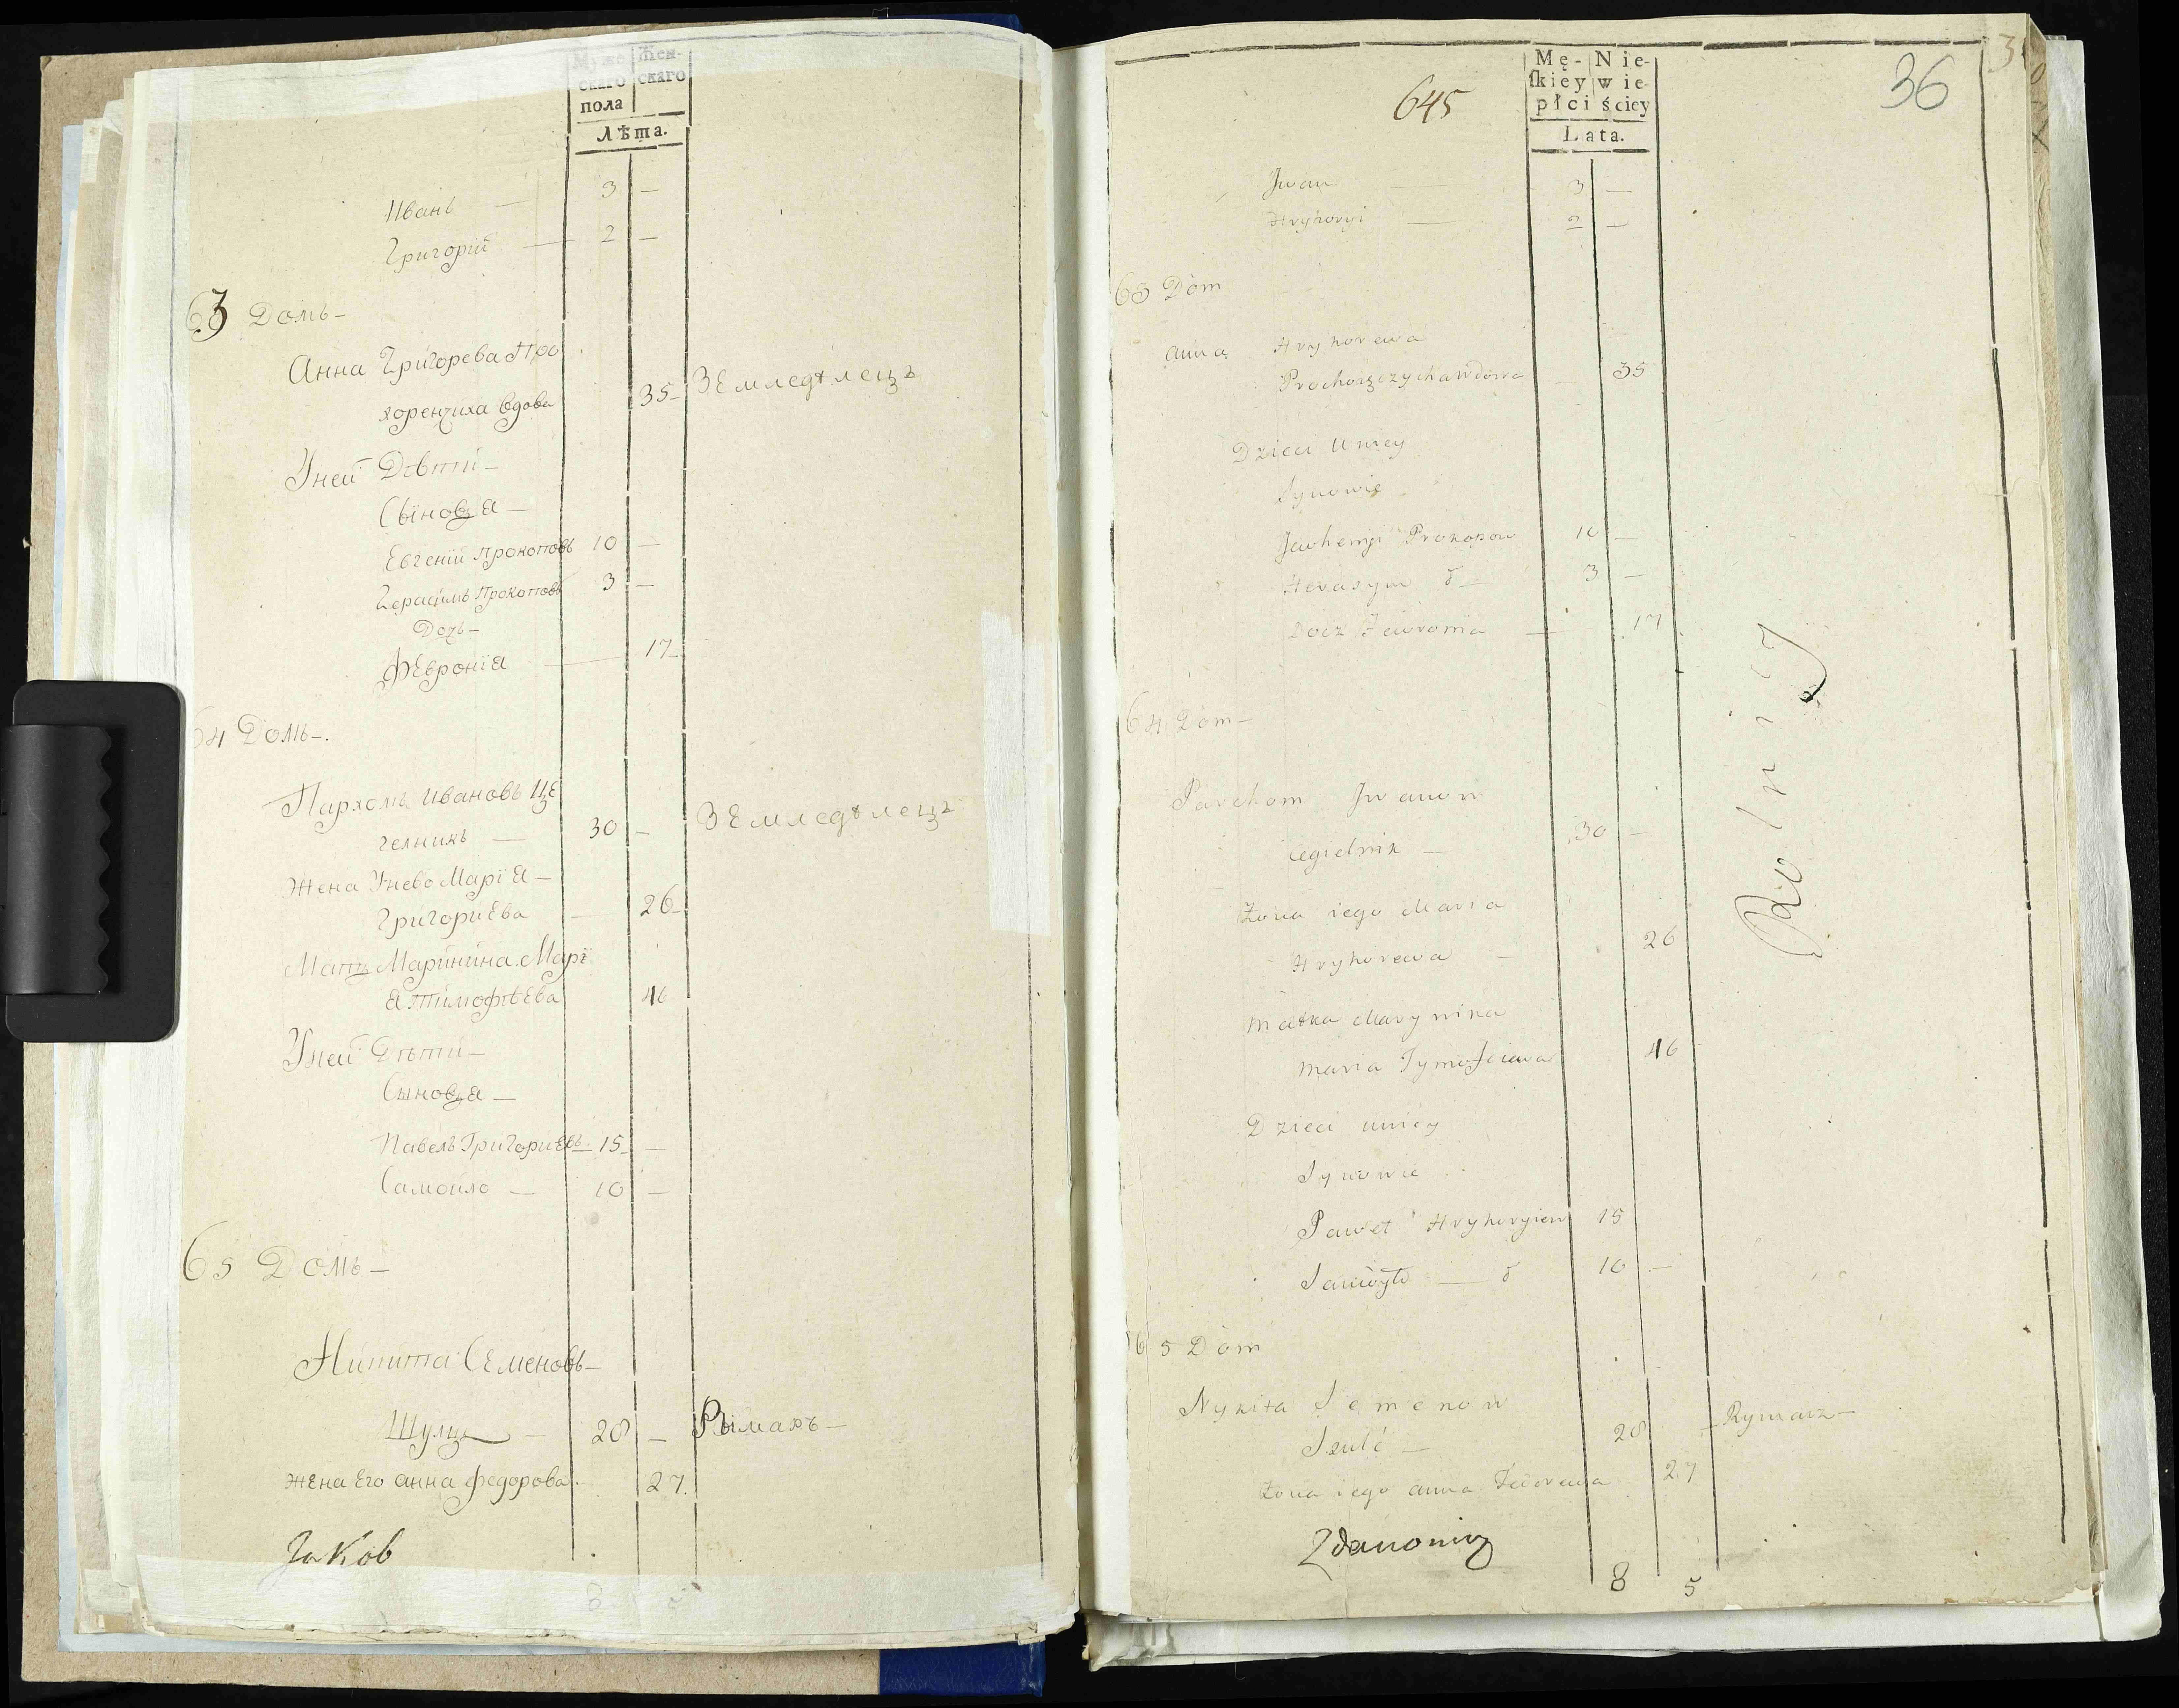 Муже
Жен-
скаго
скаго
пола
Лѣта.
Иванъ — 3 —
Григорій — 2 —
63 Домъ —
Анна Григорева Про
хоренчиха вдова 35 — Земледѣлецъ
Уней Дѣти —
Сыновья —
Евгеній Прокоповъ 10 —
Герасимъ Прокоповъ 3 —
Дочь —
Февронія — 17 —
64 Домъ —.
Пархомъ Ивановъ Це
гелникъ — 30 — Земледѣлецъ
Жена Унево Марія —
Григориева — 26 —
Мать Маринина Марі
я Тимофѣева 46
Уней Дѣти —
Сыновья —
Павелъ Григориевъ — 15 —
Самоило — 10 —
65 Домъ —
Никита Семеновъ —
Шулц — 28 — Рымаръ —
Жена Его анна федорова 27.
Яков
8 5
Mę- Nie-
ſkiey wie-
płci ściey
Lata.
645
36
Jwan — 3 —
Hryhoryi — 2 —
63 Dom
Anna Hryhorewa
Prochorączycha wdowa — 35
Dzieci Uniey
Synowie
Jewhenyi Prokopow 10 —
Herasym d — 3 —
Docz Fewronia — 17
64 Dom —
Parchom Jwanow
Cegielnik — 30 —
Żona iego Maria
Hryhorewa — 26
Matka Marynina
Maria Tymofiewa 46
Dzieci uniey
Synowie
Paweł Hryhoryiew 15
Samoyło — d 10 —
Rolnicy
65 Dom
Nykita Semenow
Szulc — 28 — Rymarz —
Żona iego anna Fedorewa 27
Zdanowicz
8 5